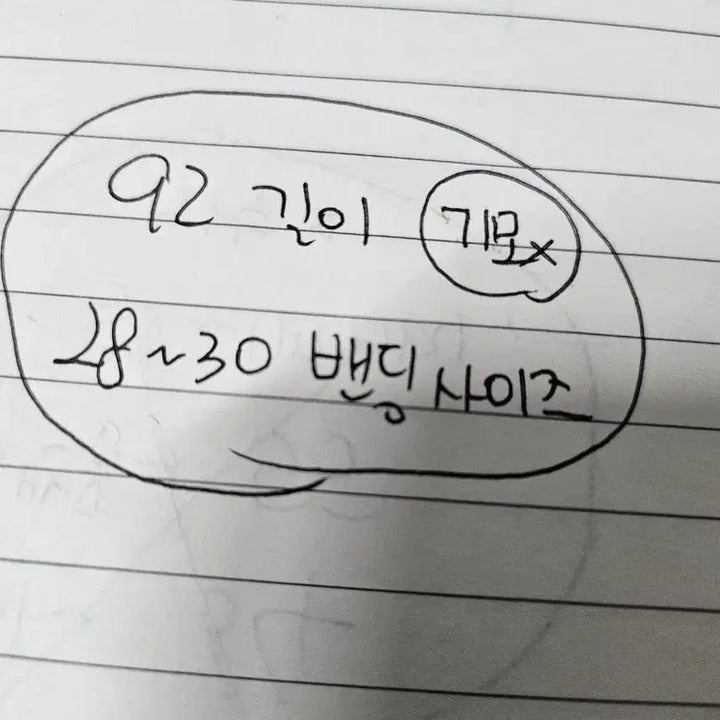 92 길이 기모x
28~30 밴딩 사이즈